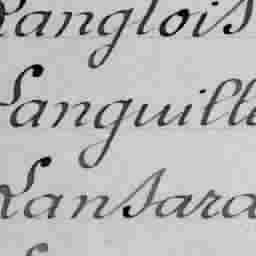 Langlois
Languille
Lansara